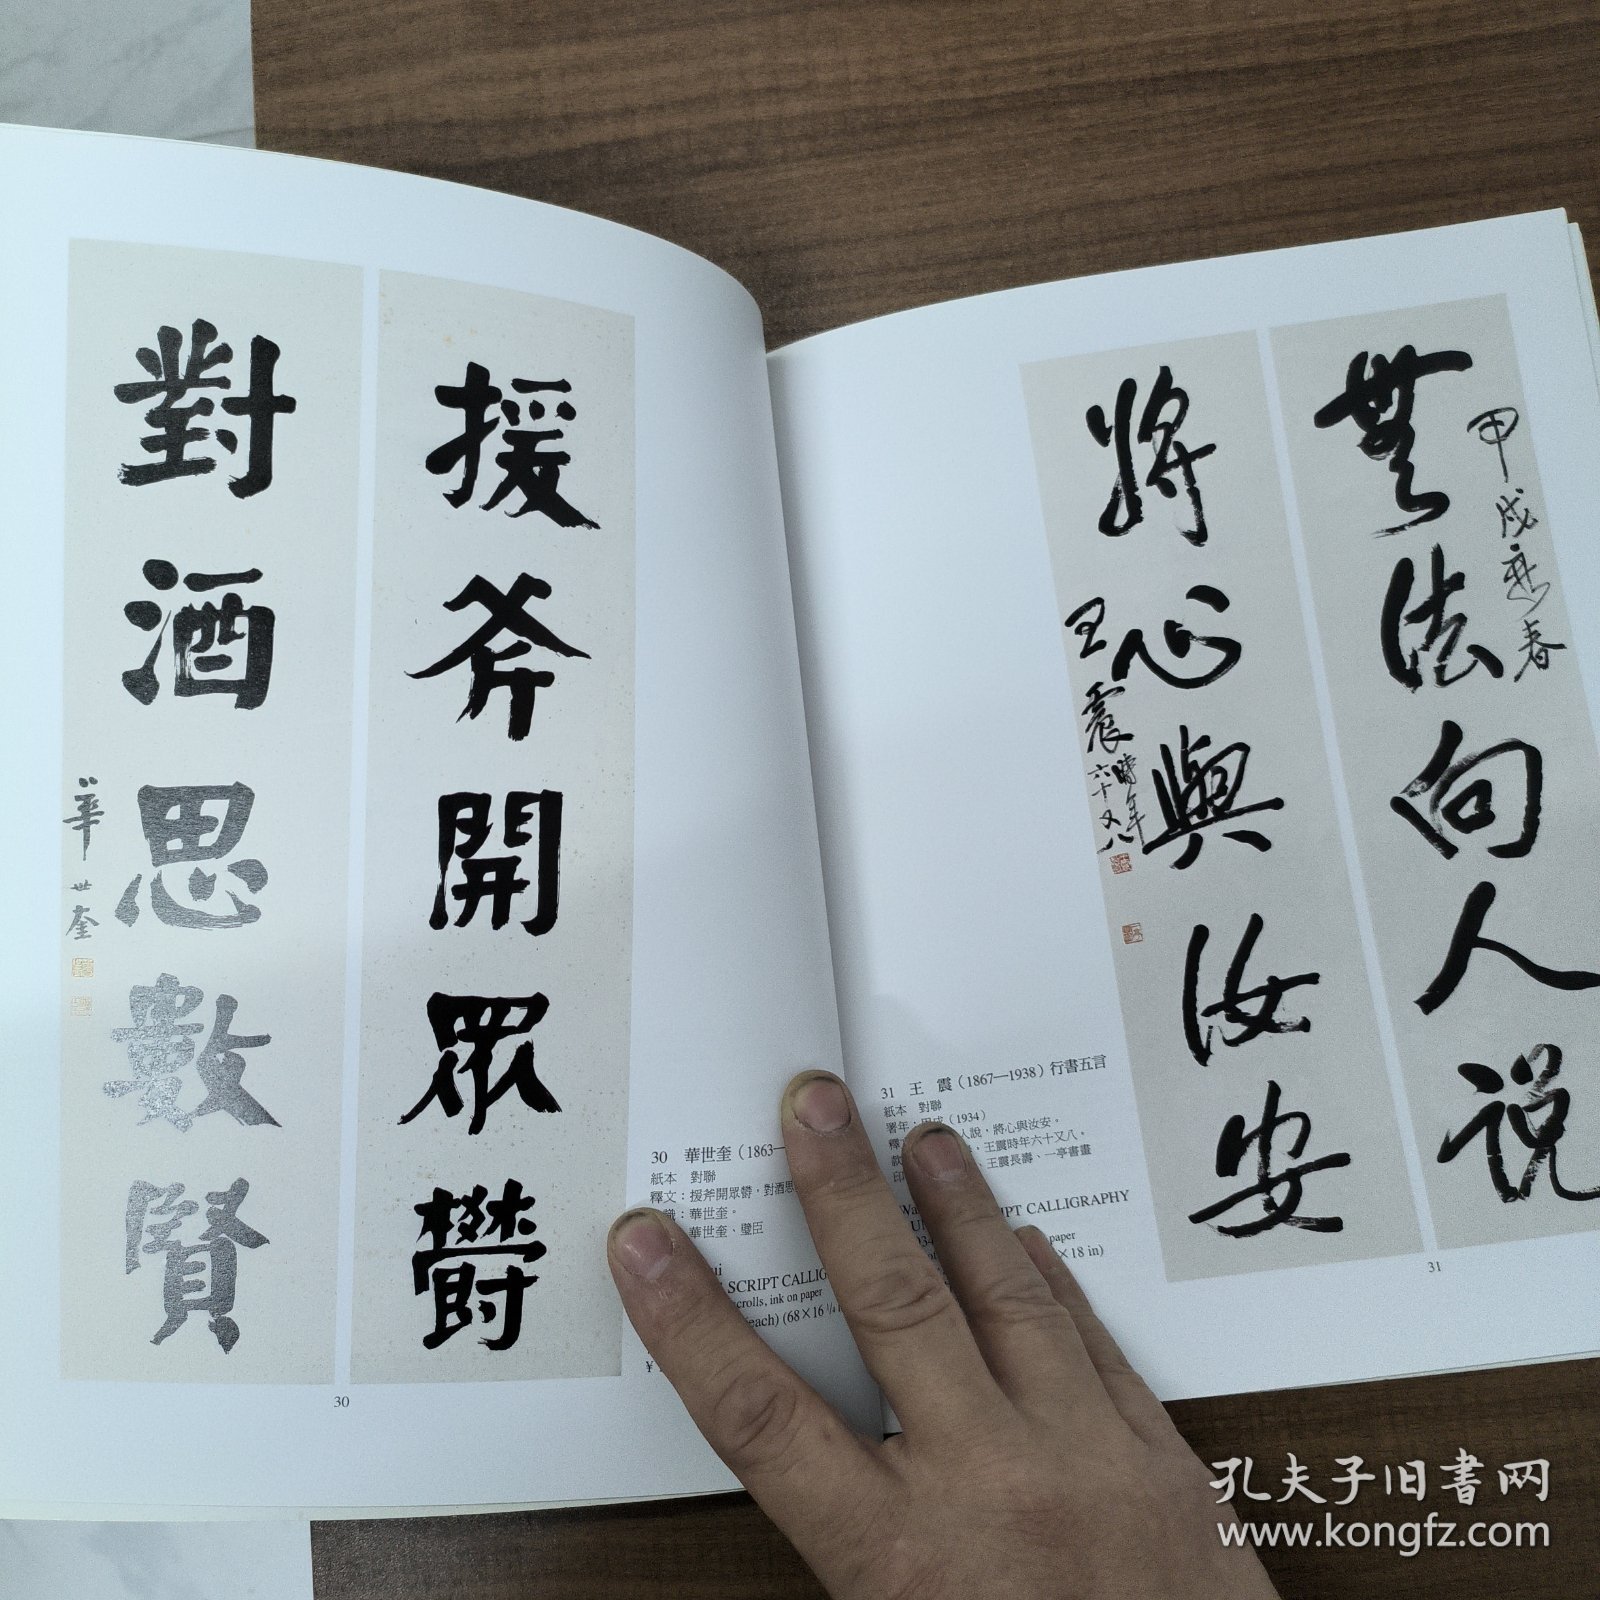 援斧開眾鬱
對酒思數賢
華世奎
30 華世奎（1863—
紙本 對聯
釋文：援斧開眾鬱，對酒思
識：華世奎。
華世奎、璧臣
ui
SCRIPT CALLIG
crolls, ink on paper
each) (68×16 ¼ i
¥
30
甲戌
春
無法向人說
將心與汝安
王震時年六十又八
31 王 震（1867—1938）行書五言
紙本 對聯
署年：甲戌（1934）
人說，將心與汝安。
王震時年六十又八。
王震長壽、一亭書畫
印
Wa
IPT CALLIGRAPHY
paper
×18 in)
31
孔夫子旧書网
www.kongfz.com